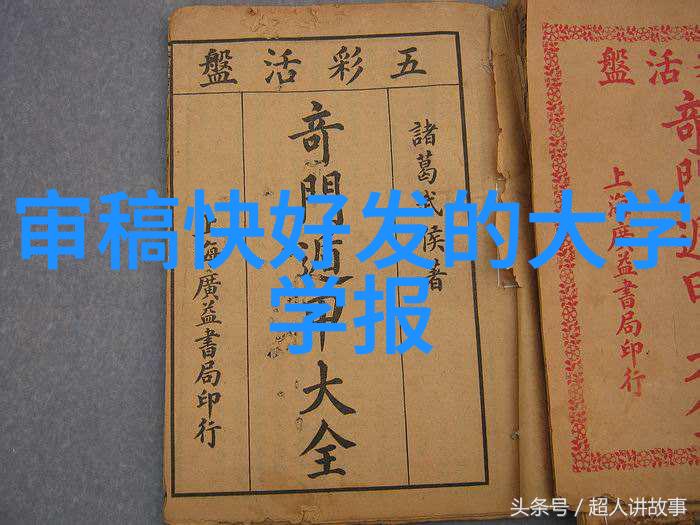 五彩活盤
諸葛武侯著
奇門遁甲大全
上海廣益書局印行
活盤
奇門遁
上海廣益書局印行
审稿快好发的大学
学报
头条号 / 超人讲故事